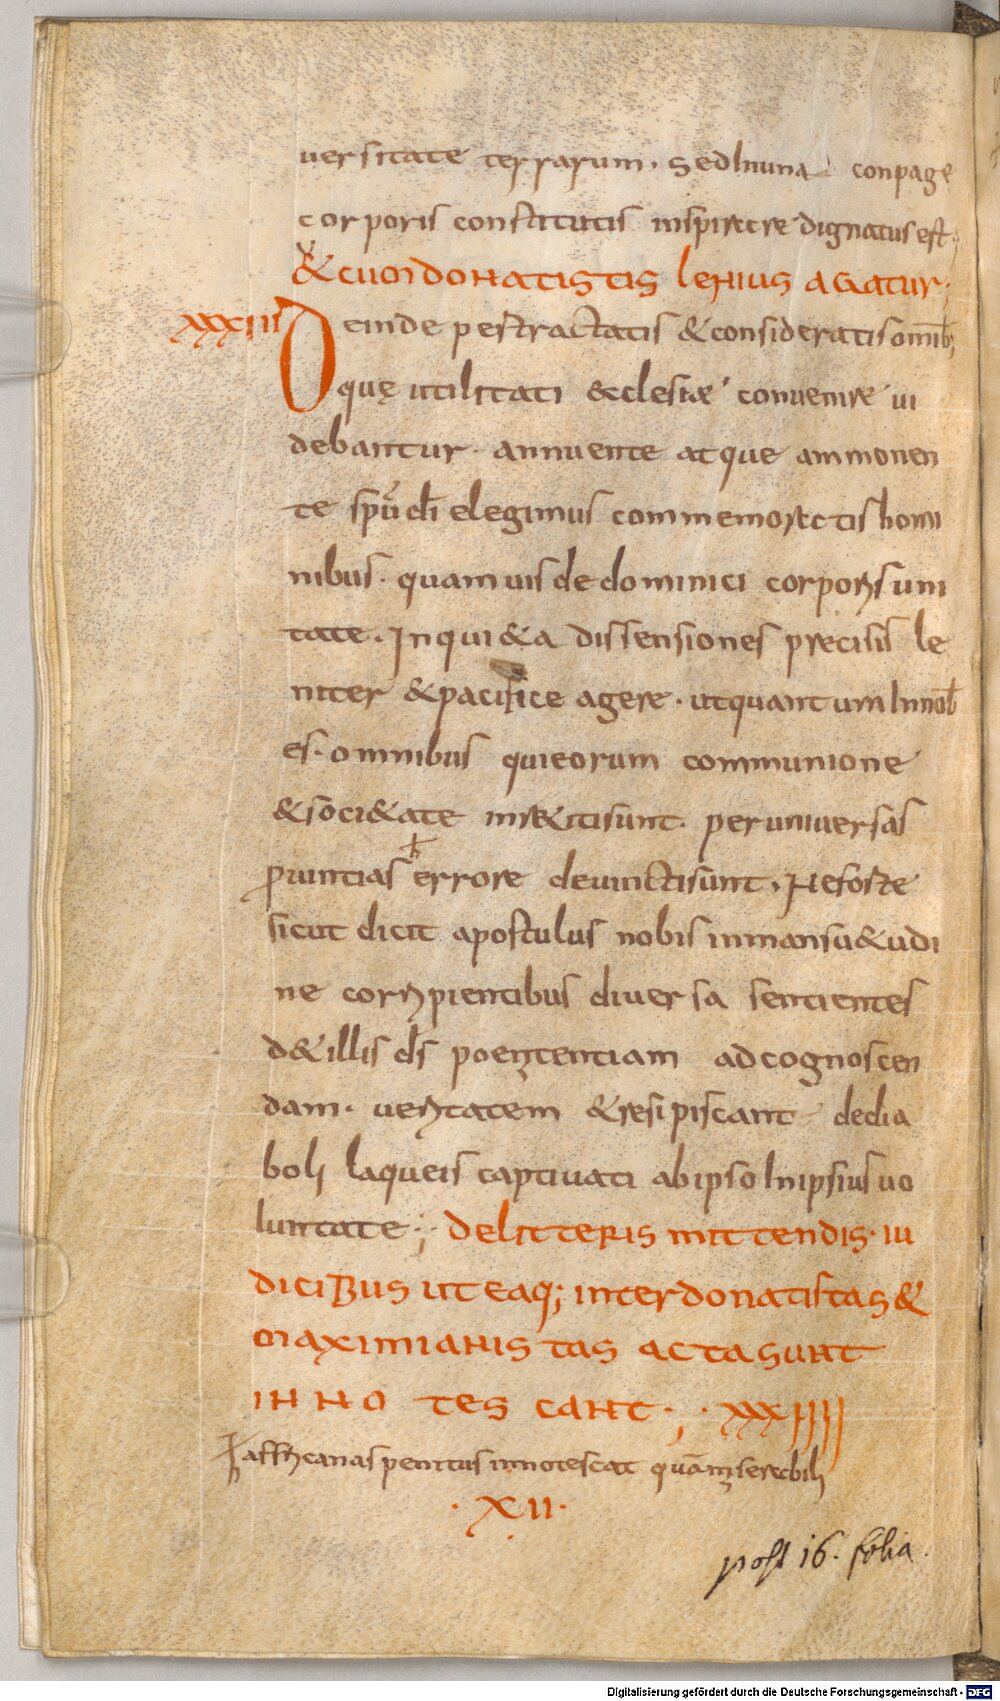 uersitate terrarum. sed In una conpage
corporis constitutis inspirare dignatus est;
& cum donatistis lenius agatur;
XXXIII Deinde pertractatis & consideratis omīb;
quę utilitati ecclesiae conuenire ui
debantur. annuente atque ammonen
te spū dī elegimus commemoratis homi
nibus. quamuis de dominici corporis uni
tate. Inqui&a dissensiones precisis le
niter & pacifice agere. ut quantum In nob
es. omnibus qui eorum communione
& soci&ate infecti sunt. per uniuersas
prouintias errore deuincti sunt. Ne forte
sicut dicit apostulus nobis in mansu&udi
ne corripientibus diuersa sentientes
d& illis ds poenitentiam ad cognoscen
dam. ueritatem & resipiscant de dia
boli laqueis captiuati ab ipso In ipsius uo
luntate; De litteris mittendis. iu
dicibus ut ea q; inter donatistas &
maximianistas acta sunt
innotescant; XXXIIII
affricanas penitus innotescat quā miserabili
. XII .
post 16. folia.
Digitalisierung gefördert durch die Deutsche Forschungsgemeinschaft - DFG